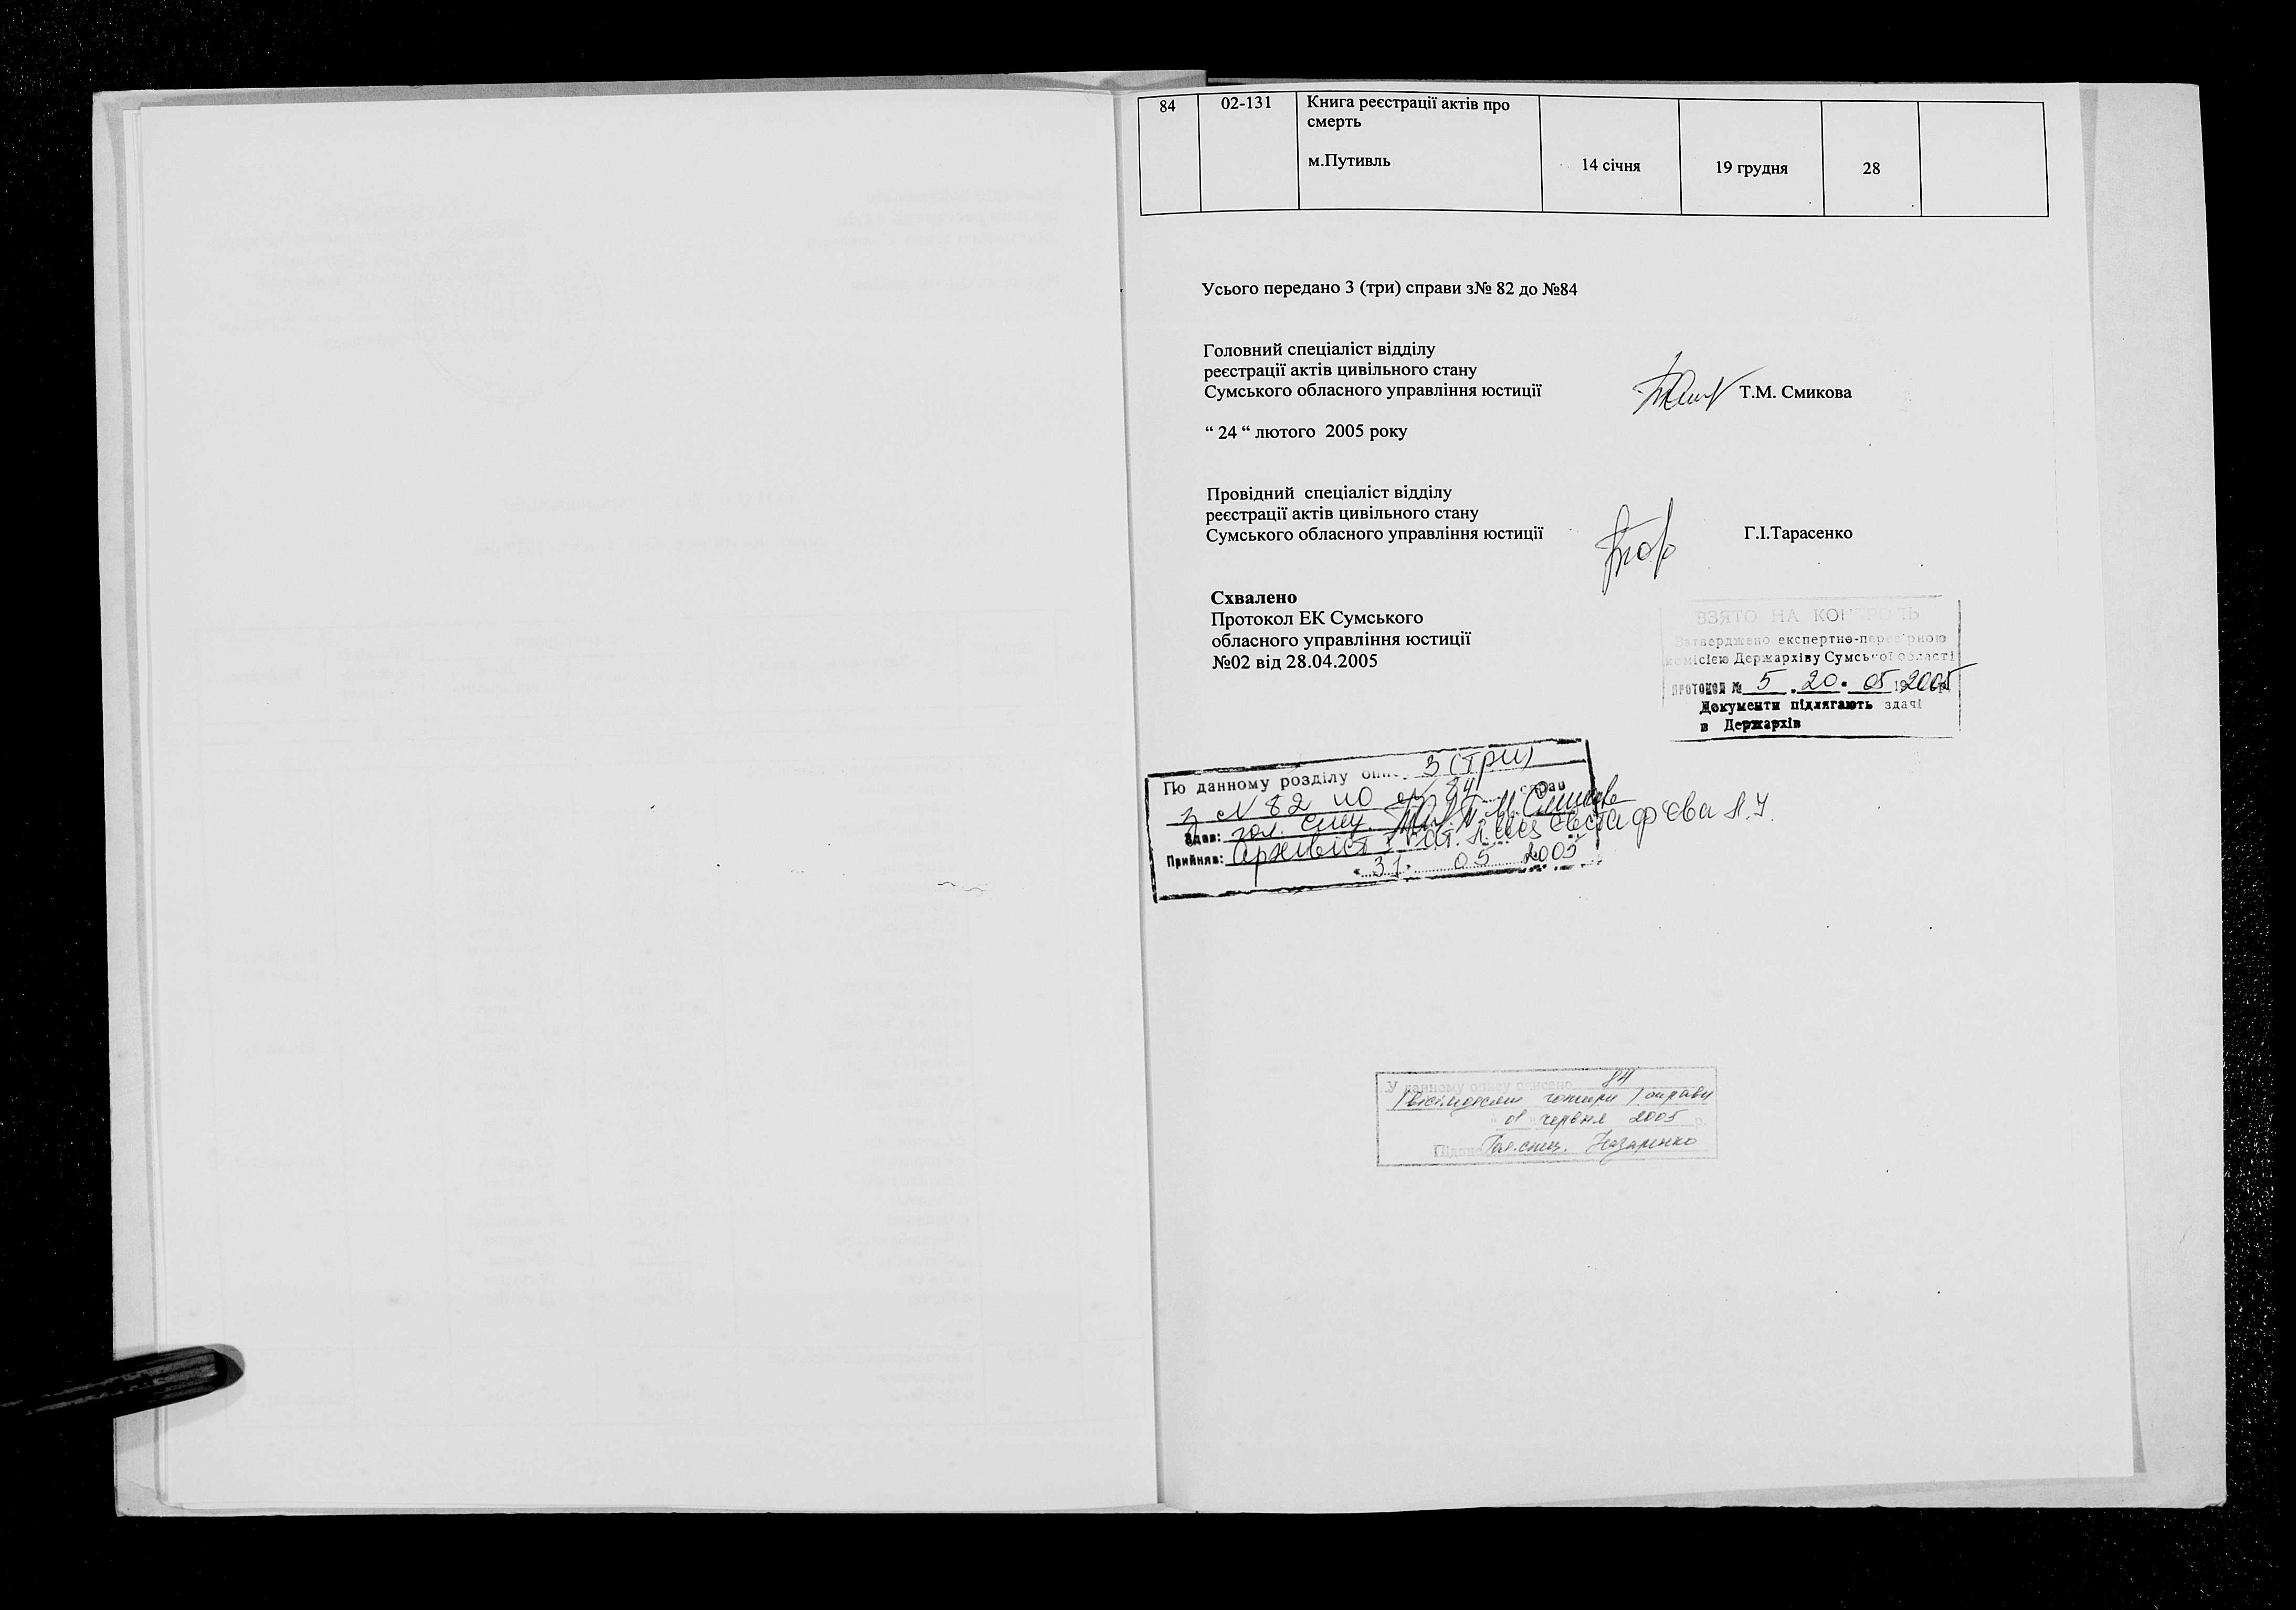 84 02-131 Книга реєстрації актів про
смерть
м.Путивль 14 січня 19 грудня 28
Усього передано 3 (три) справи з№ 82 до №84
Головний спеціаліст відділу
реєстрації актів цивільного стану
Сумського обласного управління юстиції Т.М. Смикова
“ 24 “ лютого 2005 року
Провідний спеціаліст відділу
реєстрації актів цивільного стану
Сумського обласного управління юстиції Г.І.Тарасенко
Схвалено
Протокол ЕК Сумського
обласного управління юстиції
№02 від 28.04.2005
ВЗЯТО НА КОНТРОЛЬ
Затверджено експертно-перевірною
комісією Держархіву Сумської області
протокол № 5 . 20 . 05 2005
Документи підлягають здачі
в Держархів
По данному розділу опису 3 (три)
з № 82 по № 84 справ
Здав: гол. спец. Т.М. Смикова
Прийняв: Архівіст І кат. Євстаф'єва
«31» 05 2005
У данному опису описано 84
/вісімдесят чотири/ справи
01 червня 2005 р.
Підпис Гол. спец. Назаренко